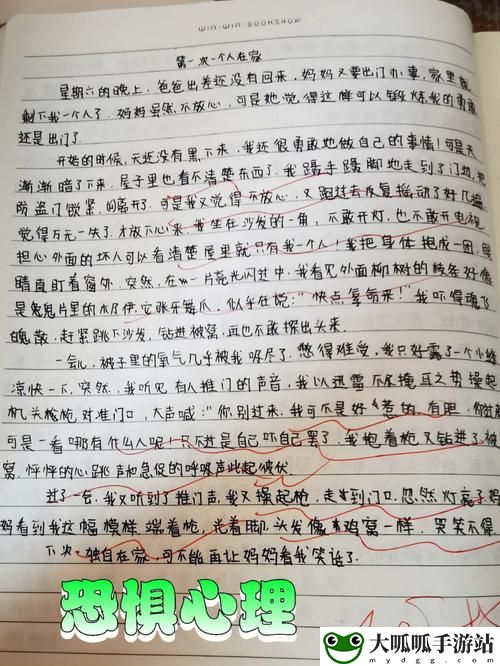 WIN-WIN BOOKSHOP
第一次一个人在家
星期六的晚上，爸爸出差还没有回来，妈妈又要出门办事，家里就
剩下我一个人了。妈妈虽然不放心，可是她觉得这样可以锻炼我的勇敢
还是出门了.
开始的时候，天还没有黑下来，我还很勇敢地做自己的事情！可是天
渐渐暗了下来，屋子里也看不清楚东西了.我蹑手蹑脚地走到了门边，把
防盗门锁紧，间离开了.可是我又觉得不放心，又跑过去反复摇动了好几遍，
觉得万无一失了.才放下心来.我坐在沙发的一角，不敢开灯，也不敢开电视
担心外面的坏人可以看清楚屋里就只有我一个人！我把身体抱成一团，眼
睛直盯着窗外.突然，在一片亮光闪过中，我看见外面柳树的枝条好像
是鬼片里的 它张牙舞爪，似乎在说："快点拿命来！"我吓得魂飞
魄散，赶紧跳下沙发，钻进被窝，再也不敢探出头来.
一会儿，被子里的氧气几乎被我吸尽了.憋得难受，我只好露了一个小缝
凉快一下.突然，我听见有人推门的声音，我以迅雷不及掩耳之势操起
机关枪枪对准门口，大声喊："你别过来，我可不是好惹的，有胆，你过
可是一看哪有什么人呢！只不过是自己吓自己罢了.我抱着枪又钻进了被
窝.怦怦的心跳声和急促的呼吸声此起彼伏
过了一会，我又听到了推门声，我又操起枪，走到门口，忽然灯亮了妈
妈看到我这幅模样端着枪，光着脚，头发像鸡窝一样，哭笑不得.
下次，独自在家，可不能再让妈妈看我笑话了.
恐惧心理
大呱呱手游站
www.mydgg.com